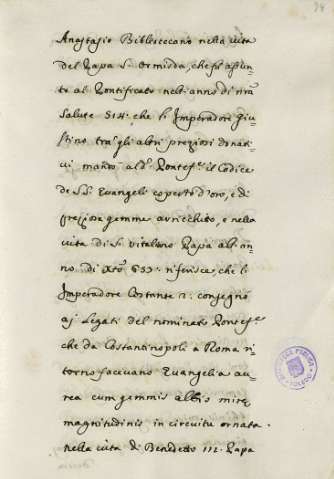 34
Anastasio Bibliotecano nella vita
del Papa S. Ormisda, che fu assun=
to al Pontificato nell'anno di nrã
Salute 514. che l'Imperadore Giu=
stino tra gli altri preziosi donati=
vi mandò al dº Pontefᵉ il Codice
de SS. Evangeli coperto d'oro, e di
preziose gemme arricchito, e nella
vita di S. Vitaliano Papa all'an=
no di Xtõ 655. riferisce, che l'
Imperadore Costante 2. consegnò
aj Legati del nominato Pontefᵉ
che da Costantinopoli a Roma ri=
torno facevano Evangelia au=
rea cum gemmis albis mire
magnitudinis in circuitu ornata.
nella vita di Benedetto III. Papa
BIBLIOTECA PUBLICA
TOLEDO